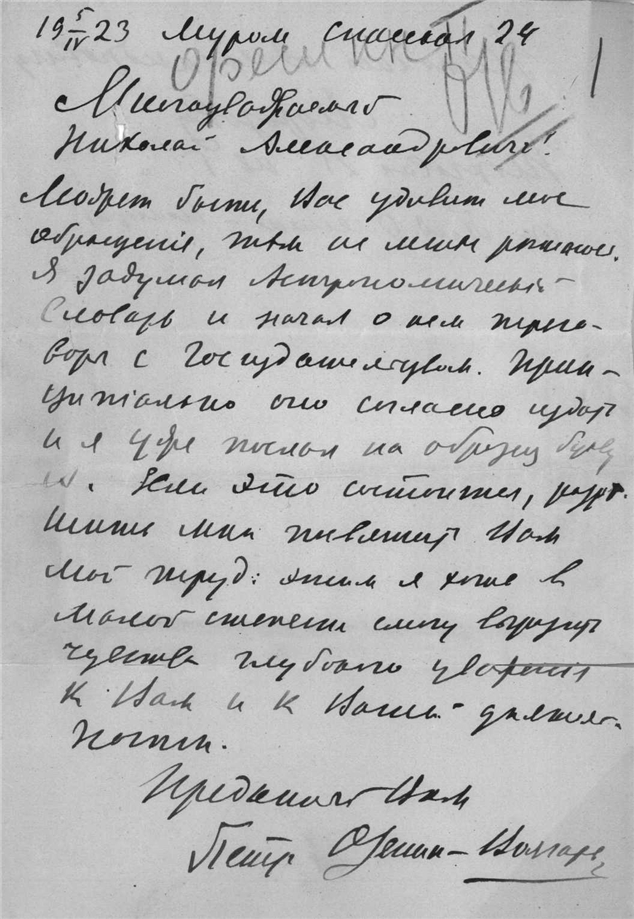 19 5/IV 23 Муром Спасская 24
Орешкин
Многоуважаемый
Николай Александрович!
Может быть, Вас удивит мое
обращение, тем не менее решаюсь.
Я задумал Астрономический
Словарь и начал о нем перего-
воры с Госиздательством. Прин-
ципиально оно согласно издать
и я уже послал на образец букву
Если это состоится, разре-
шите мне посвятить Вам
мой труд: этим я хоть в
малой степени смогу выразить
чувства глубокого уважения
к Вам и к Вашей деятель-
ности.
Преданный Вам
Петр